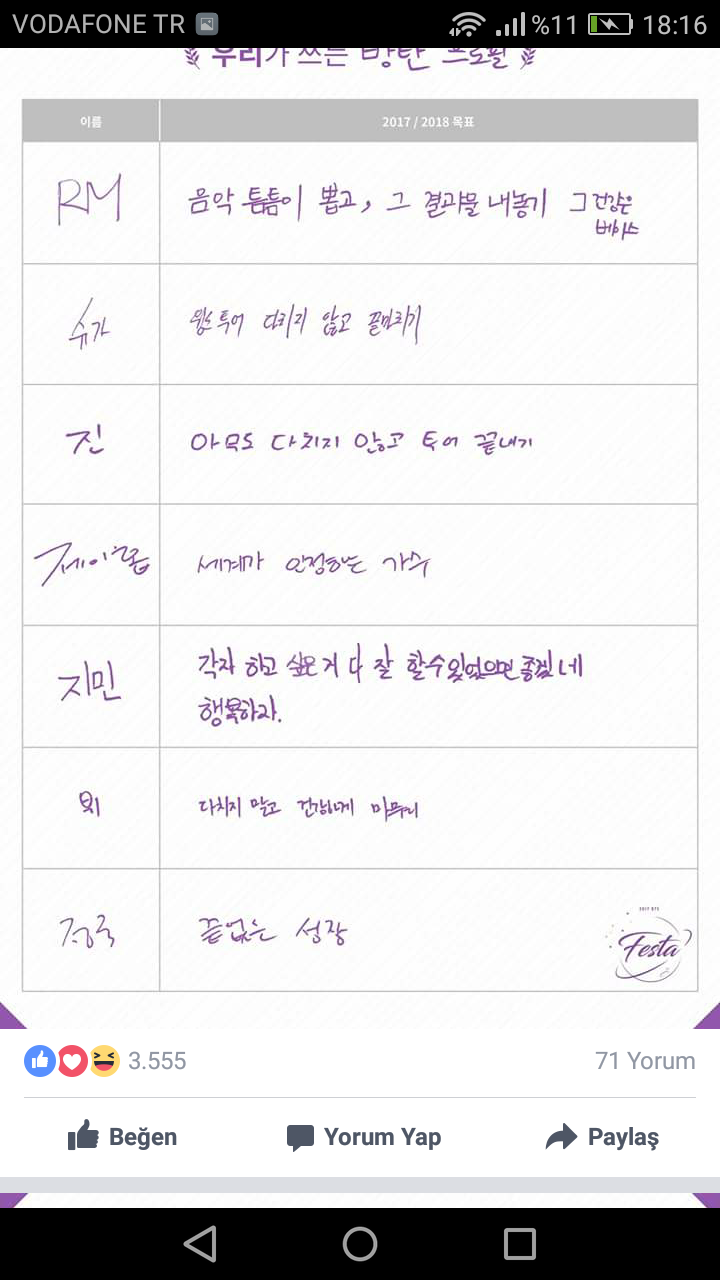 VODAFONE TR %11 18:16
우리가 쓰는 방탄 프로필
이름 2017 / 2018 목표
RM 음악 틈틈이 뽑고, 그 결과물 내놓기 그 건강은
베이스
슈가 월드투어 다치지 않고 끝마치기
진 아무도 다치지 않고 투어 끝내기
제이홉 세계가 인정하는 가수
지민 각자 하고 싶은 거 다 잘 할수있었으면 좋겠네
행복하자.
뷔 다치지 말고 건강하게 마무리
정국 끝없는 성장
2017 BTS
Festa
3.555 71 Yorum
Beğen Yorum Yap Paylaş